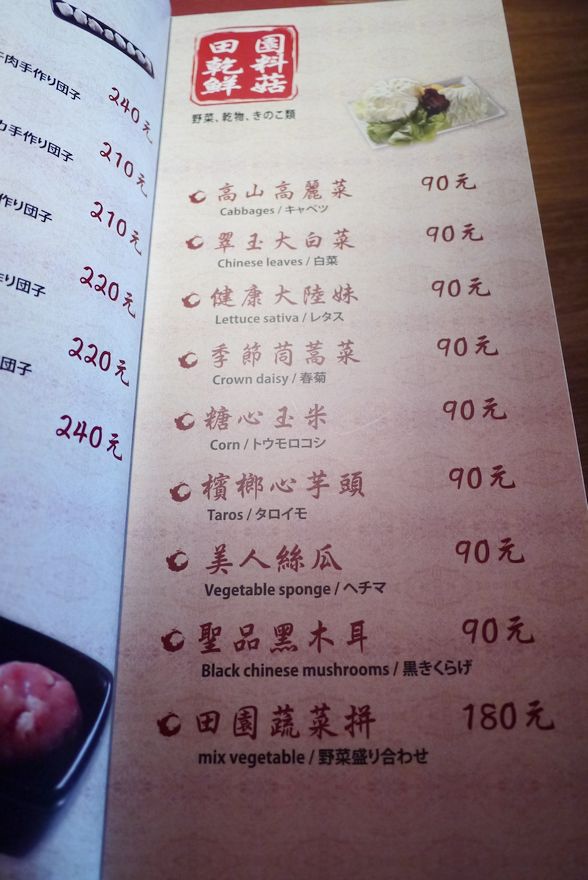 肉手作り団子 240元
手作り団子 210元
作り団子 210元
り団子 220元
団子 220元
240元
田園
乾料
鮮菇
野菜、乾物、きのこ類
高山高麗菜 90元
Cabbages / キャベツ
翠玉大白菜 90元
Chinese leaves / 白菜
健康大陸妹 90元
Lettuce sativa / レタス
季節茼蒿菜 90元
Crown daisy / 春菊
糖心玉米 90元
Corn / トウモロコシ
檳榔心芋頭 90元
Taros / タロイモ
美人絲瓜 90元
Vegetable sponge / ヘチマ
聖品黑木耳 90元
Black chinese mushrooms / 黒きくらげ
田園蔬菜拼 180元
mix vegetable / 野菜盛り合わせ